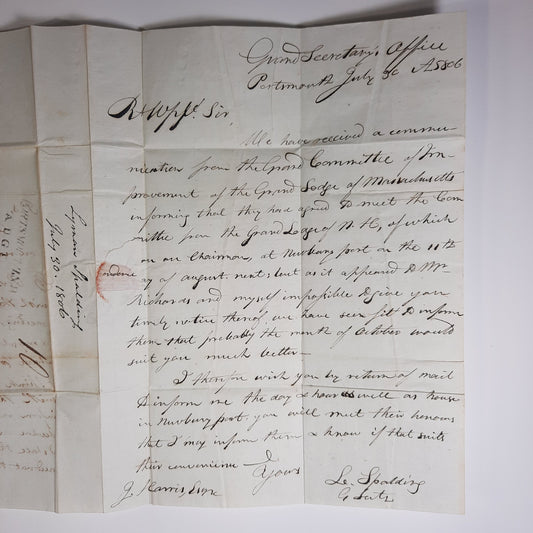 Grand Secretary's Office
Portsmouth July 30 A5806
R. Wpfl. Sir
We have received a commu-
nication from the Grand Committee of Im-
provement of the Grand Lodge of Massachusetts
informing that they had agreed to meet the Com
mittee from the Grand Lodge of N. H, of which
you are Chairman, at Newbury port on the 11th
day of august. next; but as it appeared to Mr.
Richards and myself impossible to give you
timely notice thereof, we have seen fit to inform
them that probably the month of October would
suit you much better—
I therefore wish you by return of mail
to inform me the day & hour as well as house
in Newbury port. you will meet their honours
that I may inform them & know if that suits
their convenience
Yours
Le. Spalding
G Secty
J. Harris, Esqr
Lyman Spalding
July 30. 1806
PORTSMOUTH
AUG
10